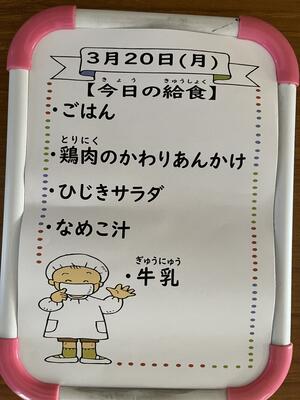 3月20日(月)
きょう きゅうしょく
【今日の給食】
・ごはん
とりにく
・鶏肉のかわりあんかけ
・ひじきサラダ
・なめこ汁
ぎゅうにゅう
・牛乳